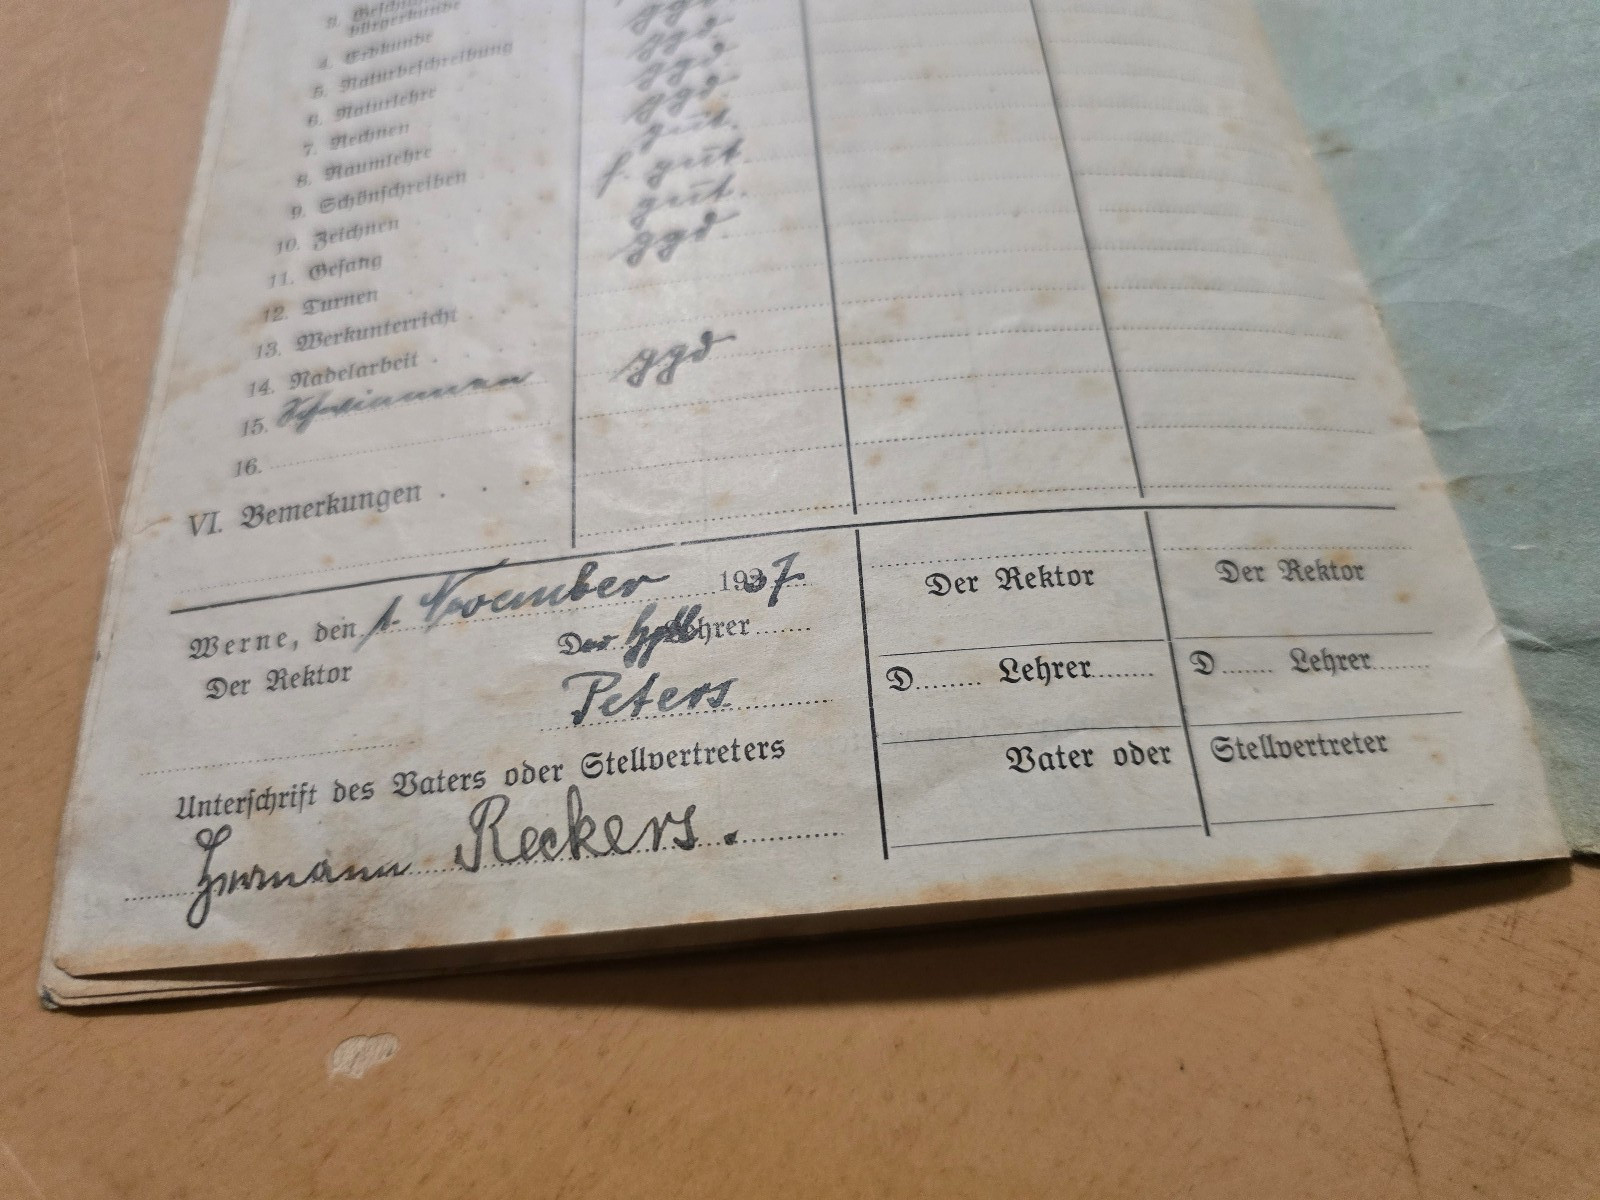 3. Geschichte
Bürgerkunde
4. Erdkunde ggd.
5. Naturbeschreibung ggd.
6. Naturlehre ggd.
7. Rechnen gut.
8. Raumlehre f. gut.
9. Schönschreiben gut.
10. Zeichnen ggd.
11. Gesang
12. Turnen
13. Werkunterricht ggd
14. Nadelarbeit
15. Schwimmen
16.
VI. Bemerkungen
Werne, den 1. November 1937
Der Rektor Der Lehrer
Peters
Unterschrift des Vaters oder Stellvertreters
Hermann Reckers.
Der Rektor Der Rektor
D Lehrer D Lehrer
Vater oder Stellvertreter